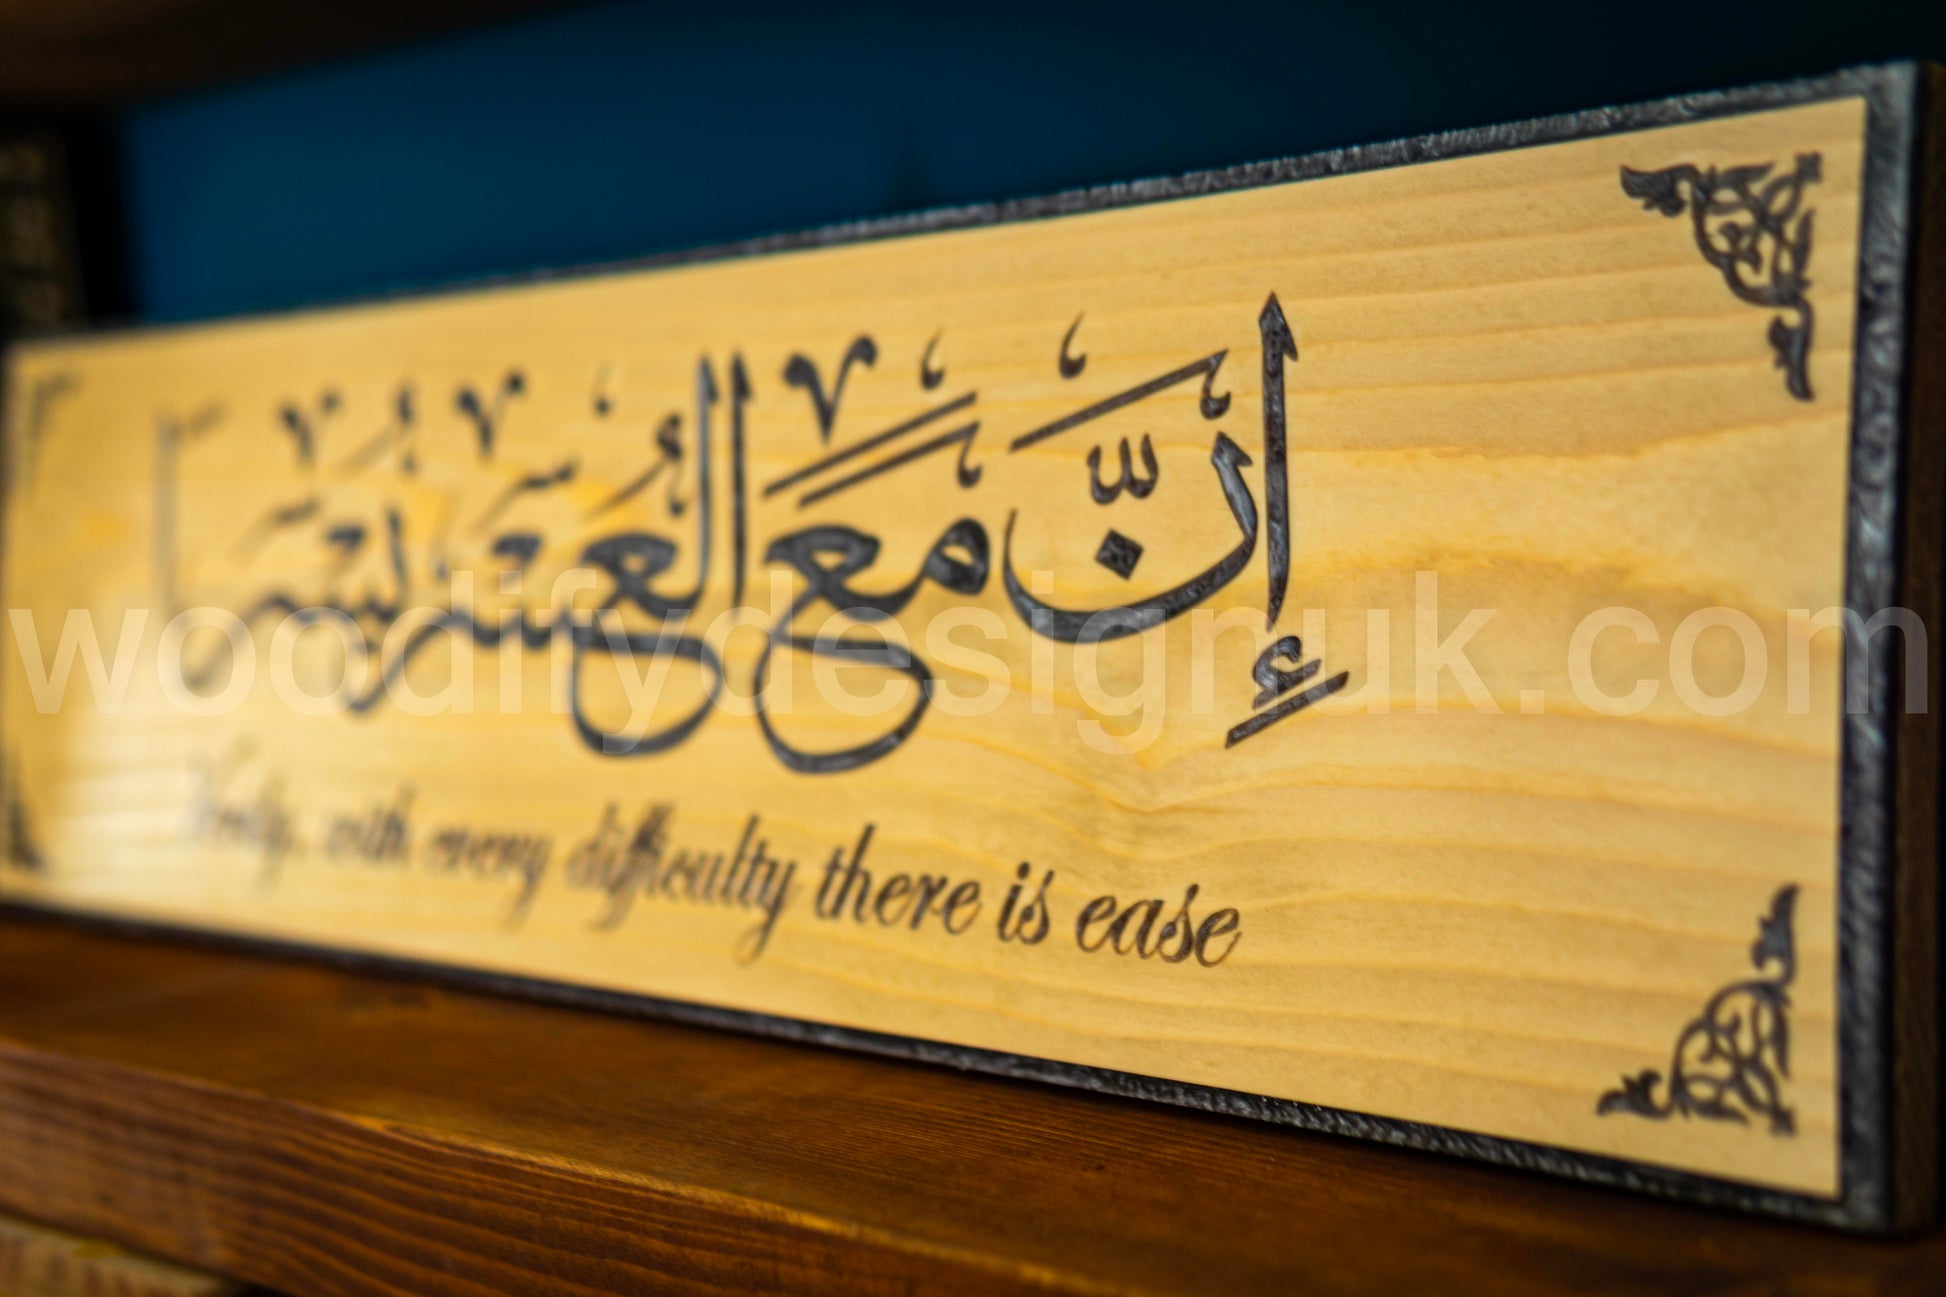 إِنَّ مَعَ العُسْرِ يُسْرًا
woodifydesignuk.com
Verily, with every difficulty there is ease